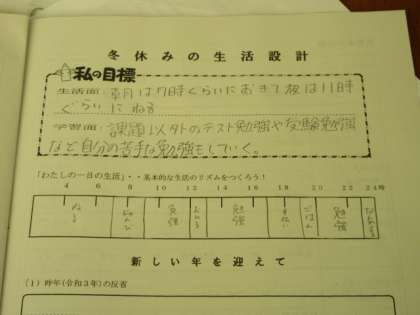 冬休みの生活設計
私の目標
生活面:朝は7時ぐらいにおきて夜は11時
ぐらいにねる
学習面:課題以外のテスト勉強や受験勉強
など自分の苦手な勉強もしていく。
「わたしの一日の生活」・・基本的な生活のリズムをつくろう!
4 6 8 10 12 14 16 18 20 22 24時
ねる 勉強 勉強 ごはん 勉強
新しい年を迎えて
(1)昨年(令和3年)の反省